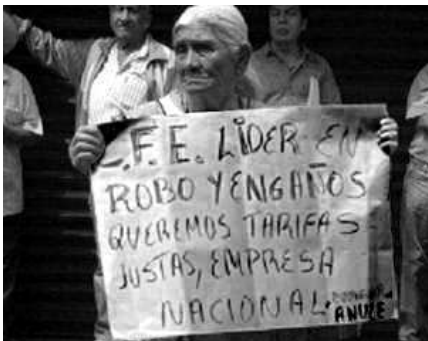 C.F.E. LÍDER EN
ROBO Y ENGAÑOS
QUEREMOS TARIFAS
JUSTAS, EMPRESA
NACIONAL.